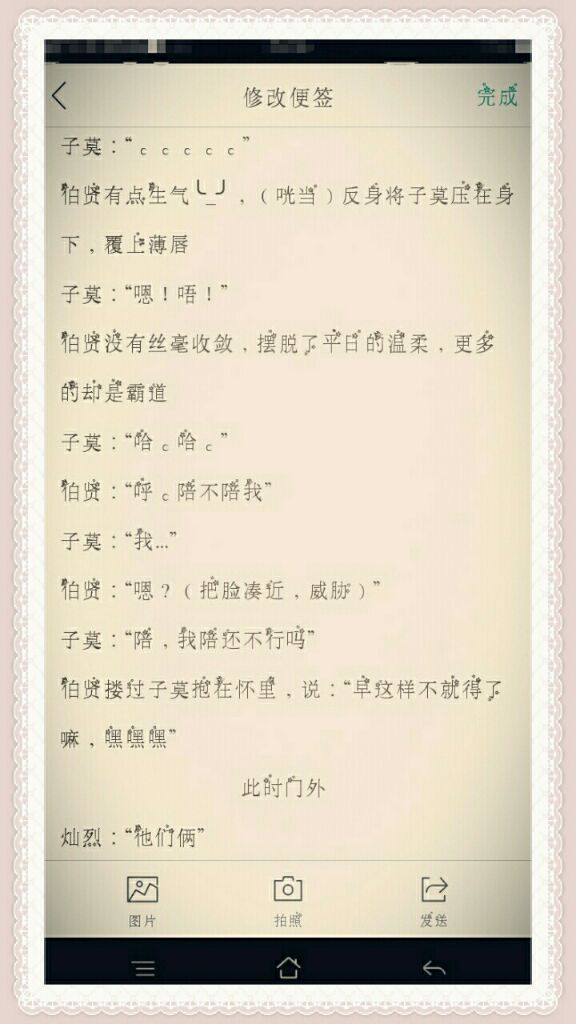 修改便签
完成
子莫：“。。。。。”
伯贤有点生气╰_╯，（咣当）反身将子莫压在身
下，覆上薄唇
子莫：“嗯！唔！”
伯贤没有丝毫收敛，摆脱了平日的温柔，更多
的却是霸道
子莫：“哈。哈。”
伯贤：“呼。陪不陪我”
子莫：“我...”
伯贤：“嗯？（把脸凑近，威胁）”
子莫：“陪，我陪还不行吗”
伯贤搂过子莫抱在怀里，说：“早这样不就得了
嘛，嘿嘿嘿”
此时门外
灿烈：“他们俩”
图片
拍照
发送